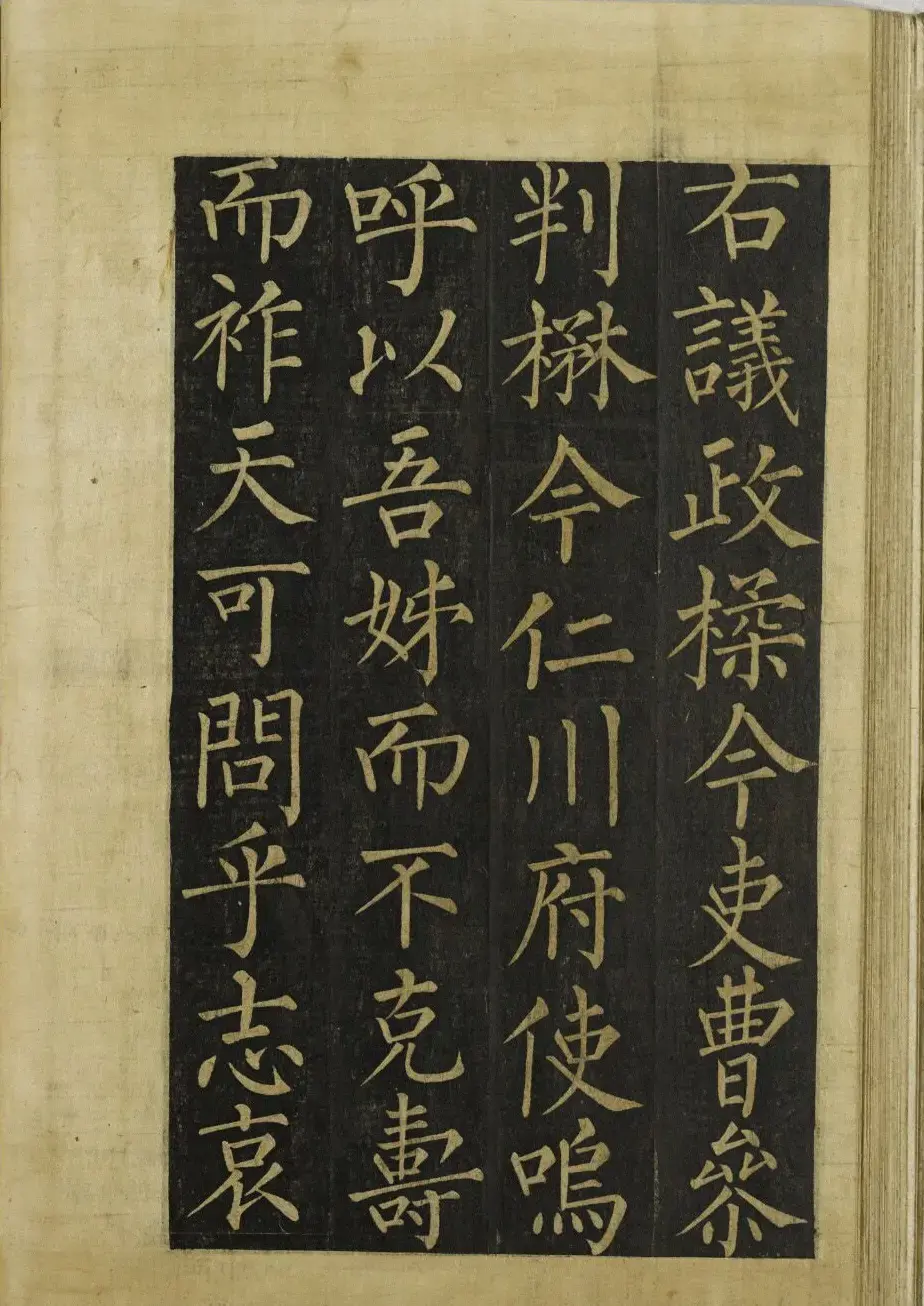 右議政楺今吏曹叅
判楙今仁川府使嗚
呼以吾姊而不克壽
而祚天可問乎志哀